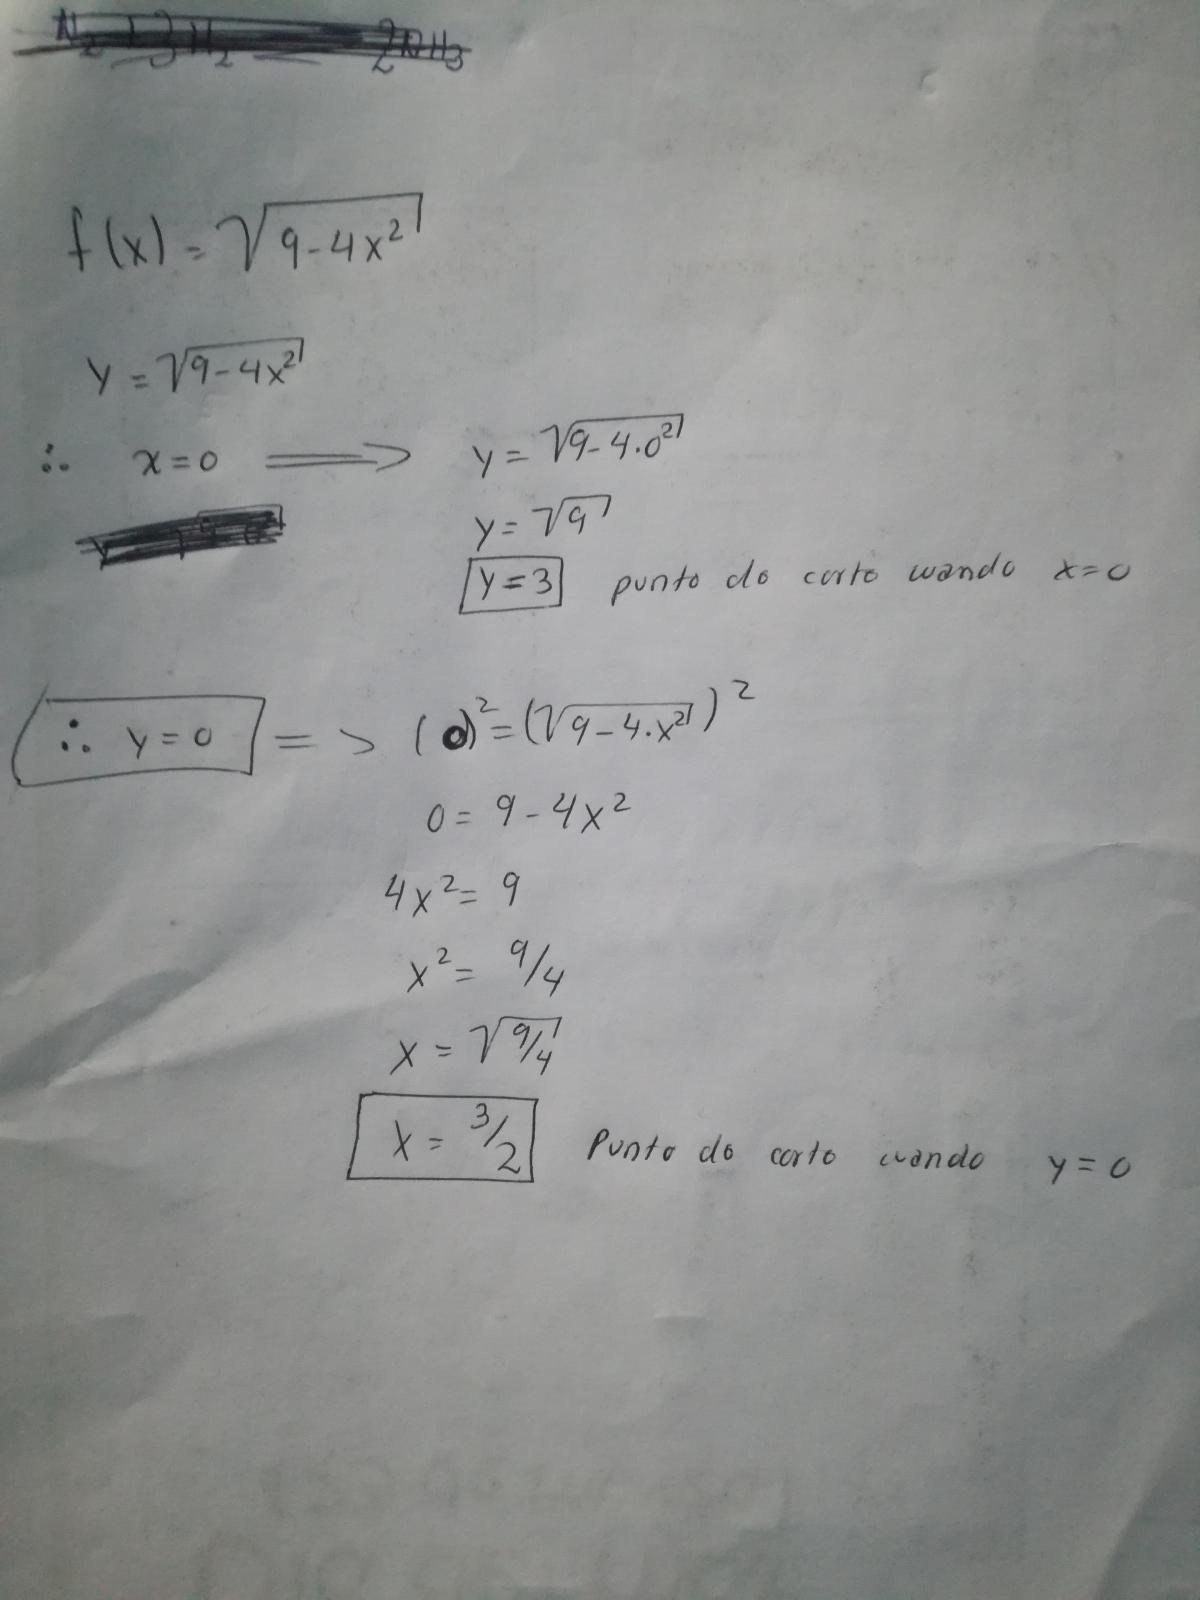 N₂ + 3H₂ 2NH₃
f(x) = √(9-4x²)
y = √(9-4x²)
∴ x=0 ⟹ y = √(9-4·0²)
y = √9
y = 3 punto de corte cuando x=0
∴ y=0 => (0)² = (√(9-4·x²))²
0 = 9-4x²
4x² = 9
x² = 9/4
x = √(9/4)
x = 3/2 Punto de corte cuando y=0